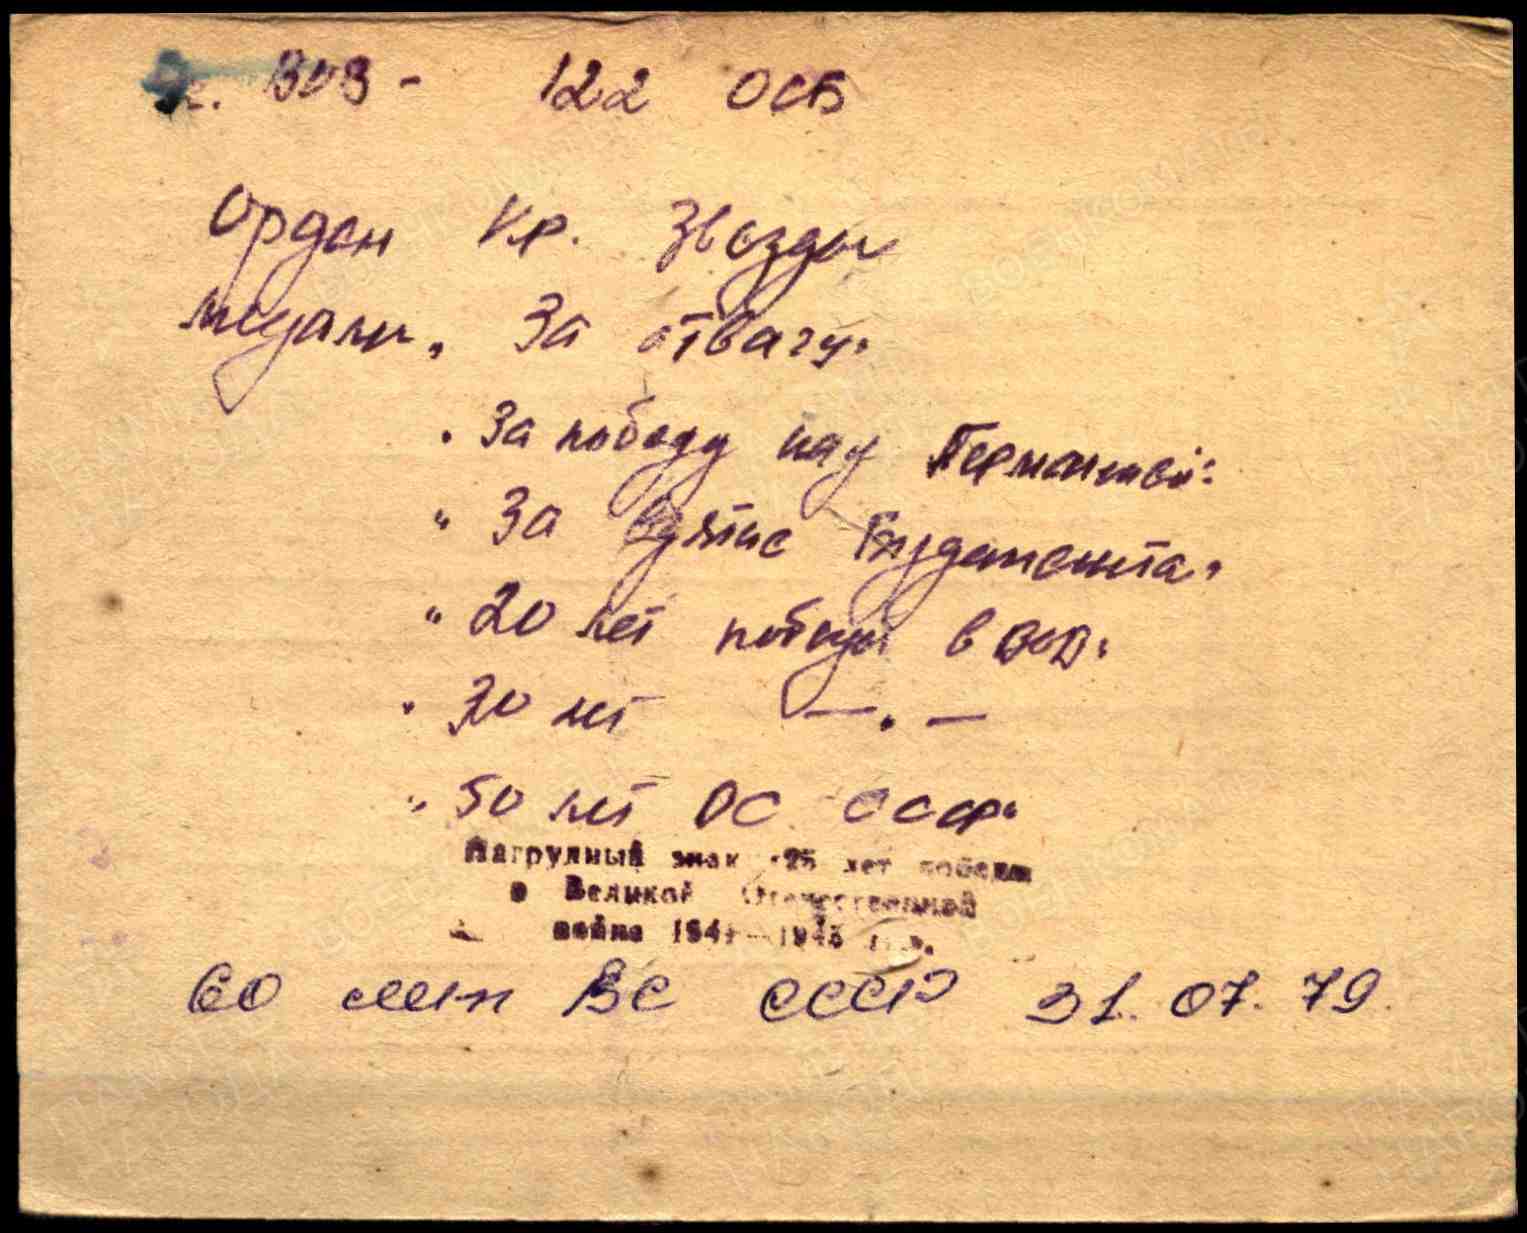 Уч. ВОВ - 122 ОСБ
Орден Кр. Звезды
медали „За отвагу"
„За победу над Германией"
„За взятие Будапешта"
„20 лет победы в ВОВ"
„30 лет — „ —
„50 лет ВС СССР"
Нагрудный знак „25 лет победы
в Великой Отечественной
войне 1941—1945 гг.".
60 лет ВС СССР 31.07.79.